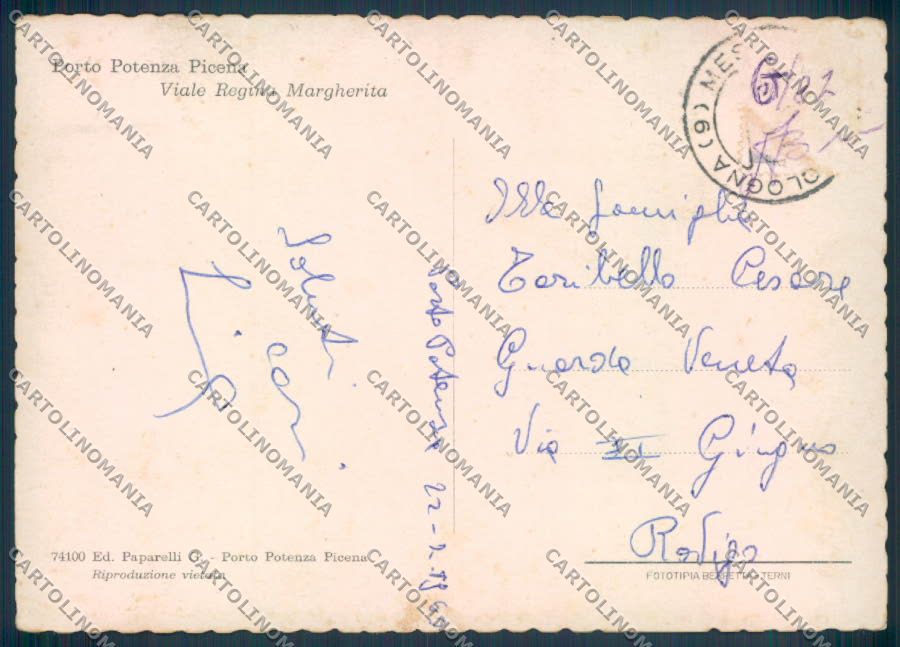 Porto Potenza Picena
Viale Regina Margherita
Saluti
cari
Porto Potenza 22-
Alla famiglia
Toribello Cesare
Guarda Veneta
Via XI Giugno
Rovigo
74100 Ed. Paparelli G. - Porto Potenza Picena
Riproduzione vietata
FOTOTIPIA TERNI
BOLOGNA (9)
CARTOLINOMANIA